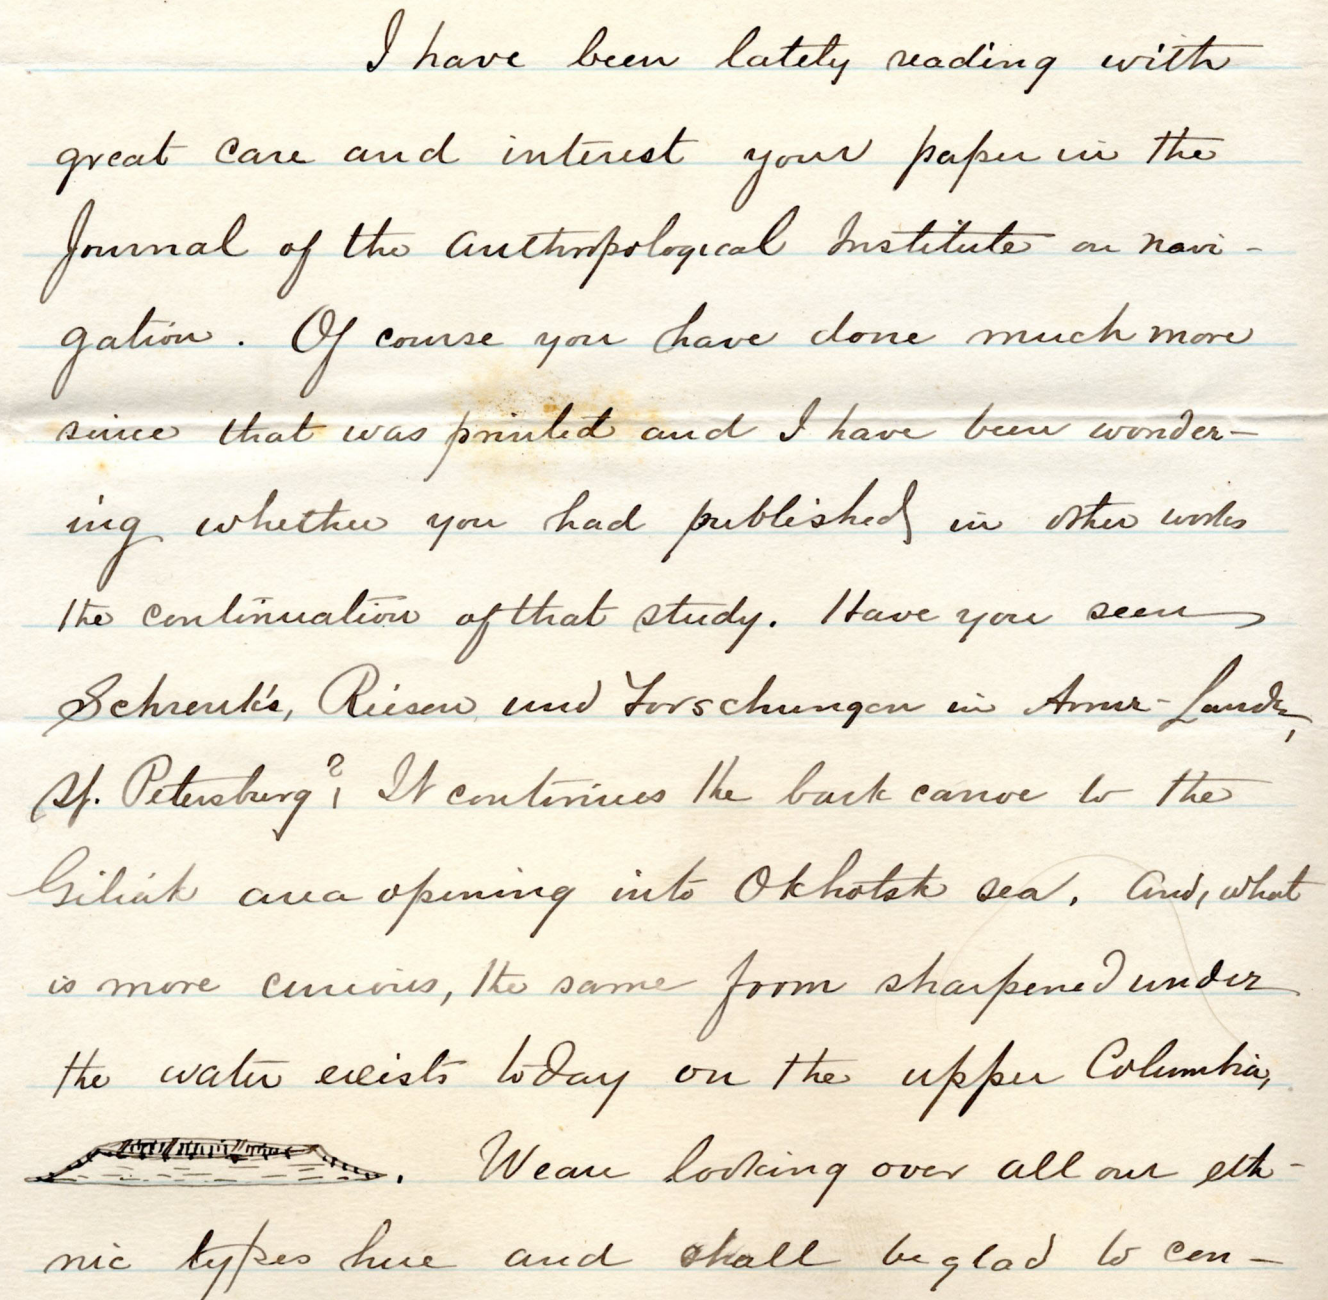 I have been lately reading with
great care and interest your paper in the
Journal of the Anthropological Institute on navi-
gation. Of course you have done much more
since that was printed and I have been wonder-
ing whether you had published in other works
the continuation of that study. Have you seen
Schrenk's, Riesen und Forschungen in Amur-Lande,
St. Petersburg? It continues the bark canoe to the
Giliak area opening into Okhotsk sea. And, what
is more curious, the same form sharpened under
the water exists today on the upper Columbia,
. We are looking over all our eth-
nic types here and shall be glad to con-